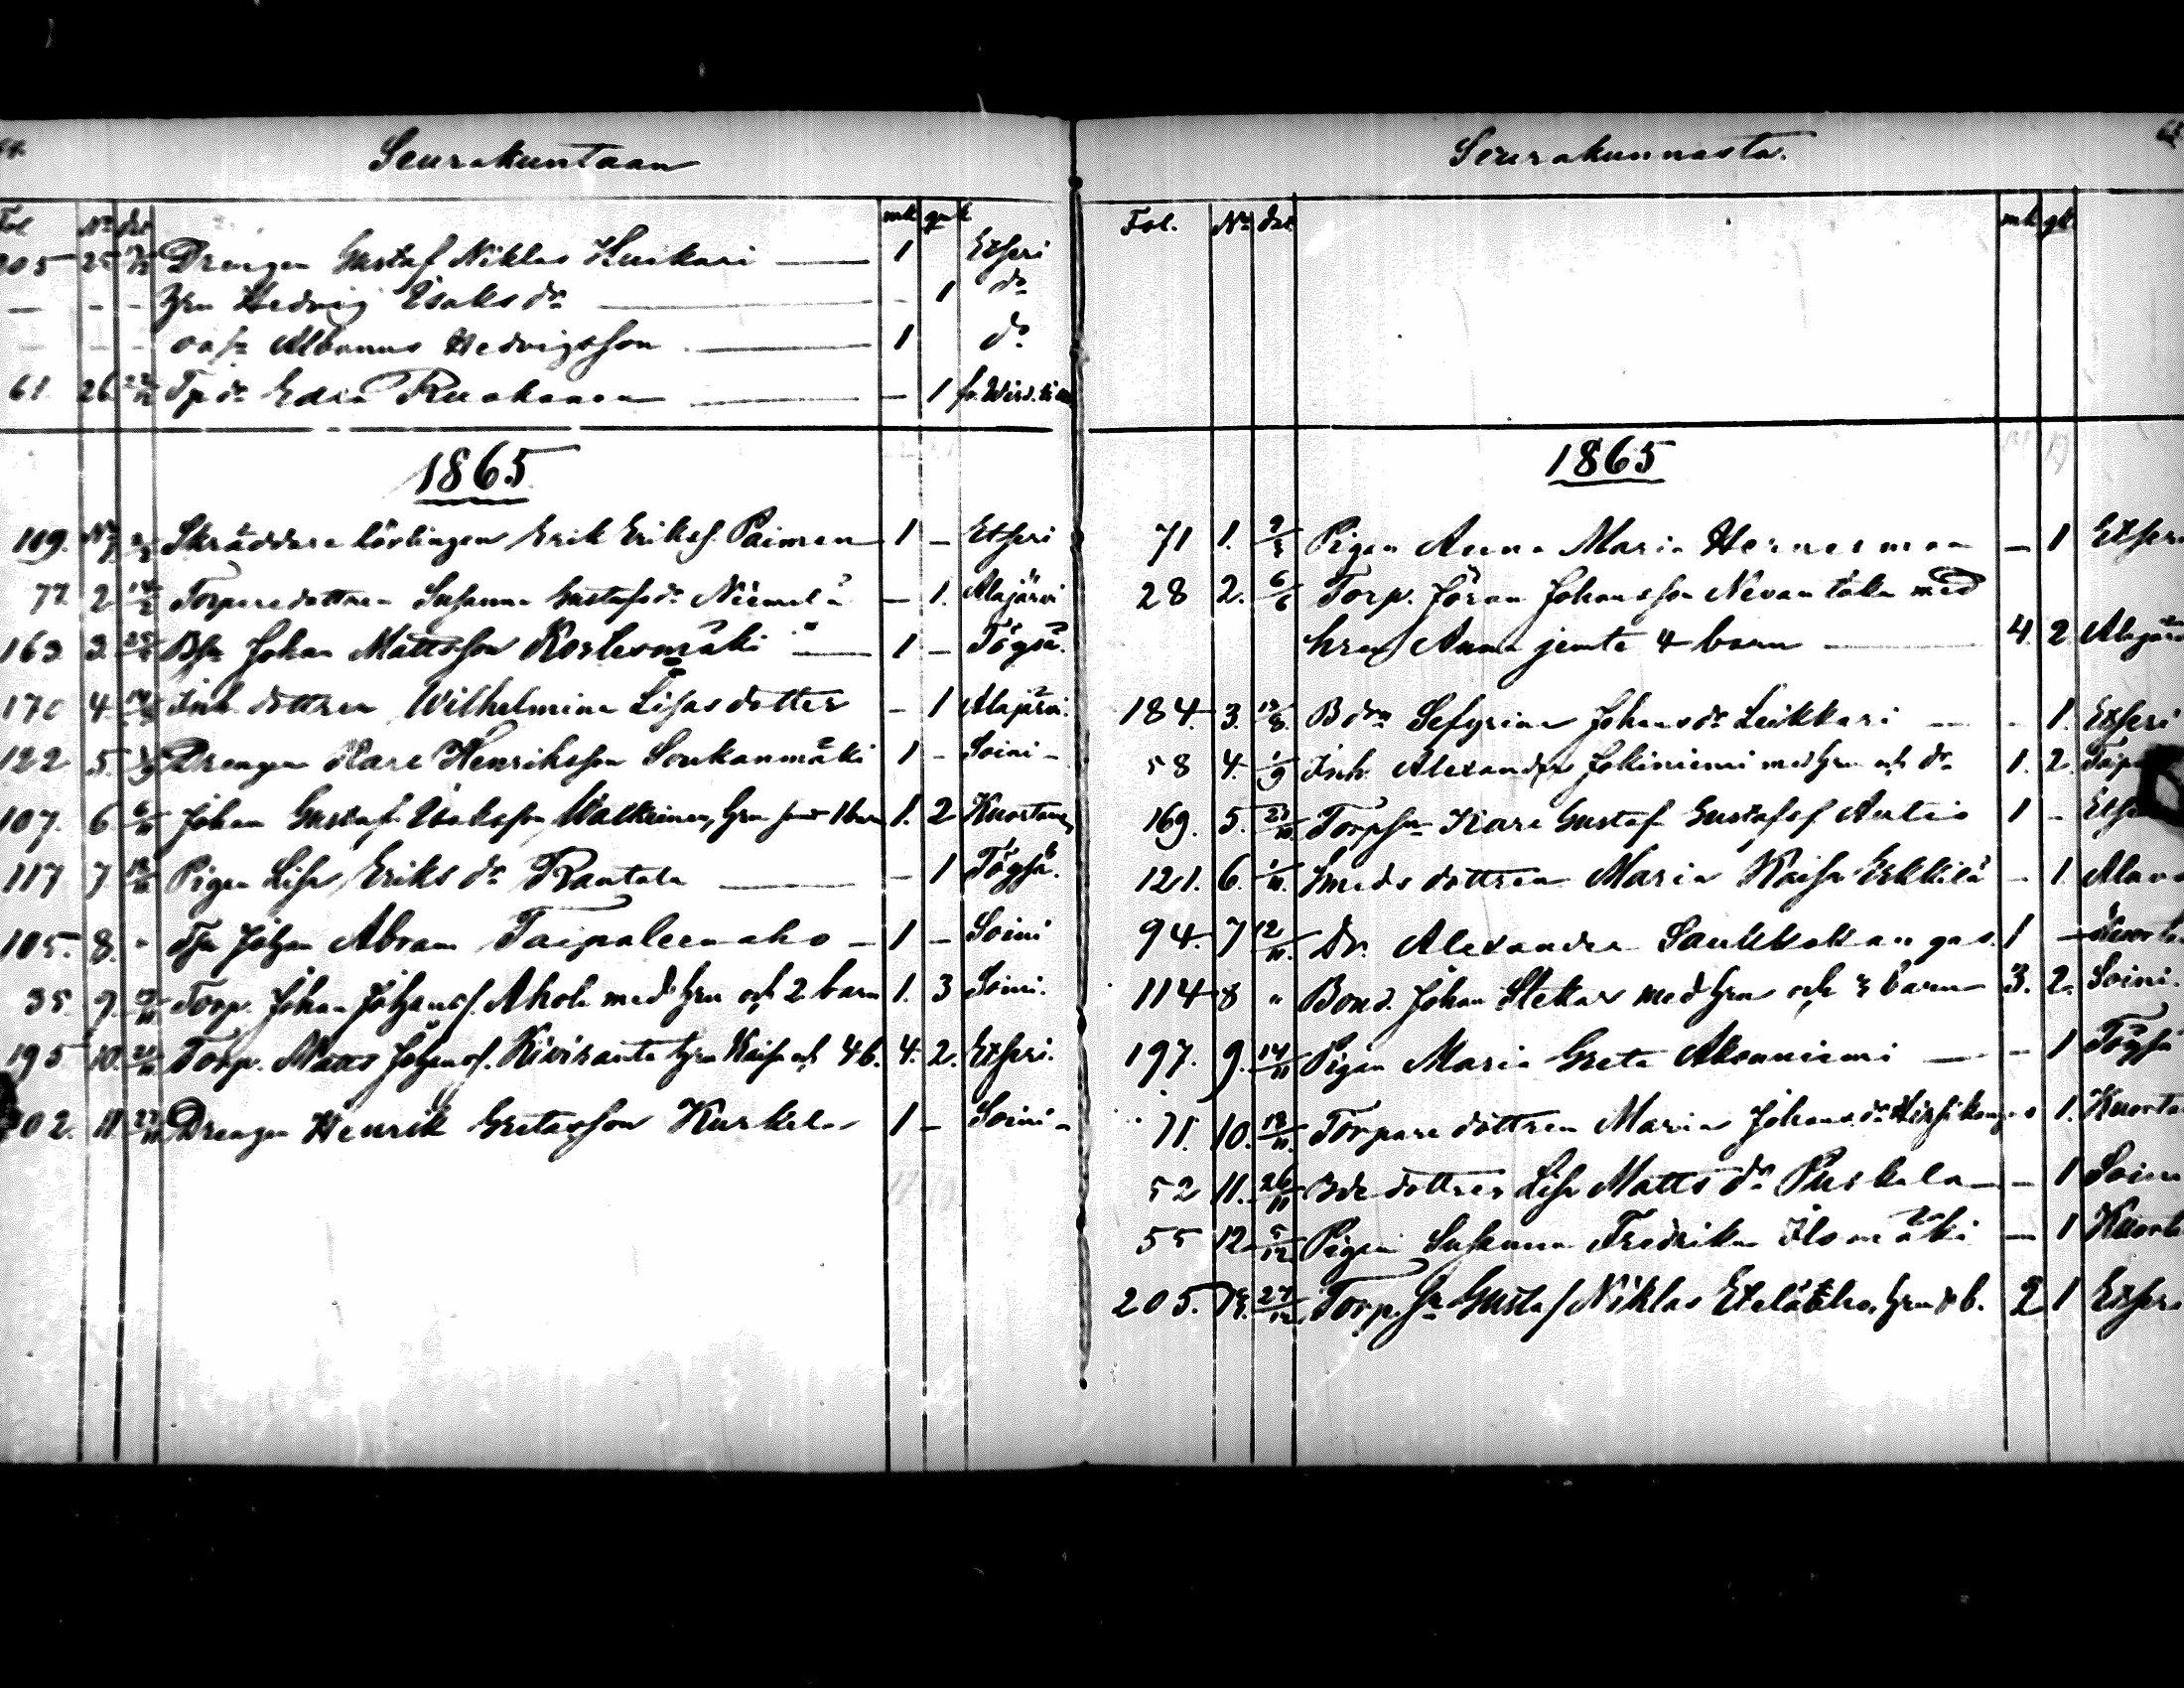 64.
Seurakuntaan
Fol No dat mk qvk
205 25 Drengen Gustaf Niklas Huikari 1 Etseri
— — — Hru Hedvig Isaks dr — 1 do
— — — Albanus Hedvigsson 1 do
61 26 Tp dr Edla Ruohonen — 1 fr. Wirdois
1865
109. No 1 Skräddare lärlingen Erik Eriksf. Paimen 1 — Etseri
77 2 Torparedottren Susanna Gustafs dr Niemelä — 1. Alajärvi
163 3 Johan Mattsson Kortesmäki 1 — Töysä.
170 4 Inh. dottren Wilhelmina Lisas dotter — 1 Alajärvi.
122 5 Drengen Karl Henriksson Soukanmäki 1 — Soini —
107. 6 Johan Gustaf Isaksson Walkeinen, hru samt 1 barn 1. 2 Kuortane
117 7 Pigan Lisa Eriks dr Rantala — 1 Töysä.
105. 8. " Johan Abram Taipaleenaho — 1 — Soini
35 9. Torp. Johan Johansf. Ahola med hru och 2 barn 1. 3 Soini.
195 10. Torp. Matts Johansf. Kiviranta hru Kaisa och 4 b. 4. 2. Etseri.
202. 11 27/11 Drengen Henrik Gretasson Kurkela 1 — Soini —
Seurakunnasta.
Fol. No dat mk qk
1865
71 1. Pigan Anna Maria Hernesman — 1 Etseri
28 2. 6/6 Torp. Jöran Johansson Nevantaka med
hru Anna jemte 4 barn 4. 2. Alajärv
184. 3. Bdrn Sefyrina Johans dr Leikkari — 1. Etseri
58 4. 1/9 Inh. Alexander Jokiniemi med hru och dr 1. 2.
169. 5. Karl Gustaf Gustafsf Autio 1 —
121. 6. 1/11. Smeds dottren Maria Kaisa Erkkilä — 1. Alav
94. 7 12/11. Dr. Alexander Saukkokangas. 1 —
114 8 " Bond. Johan Stekar med hru och 3 barn 3. 2. Soini.
197. 9. 14/11 Pigan Maria Greta Aksanniemi — 1 Töysä
71. 10. 18/11. Torpare dottren Maria Johans dr 1. Kuorta
52 11. 26/11 dottren Lisa Matts dr Puskala — 1 Soini
55 12 5/12 Pigan Susanna Fredrika Ilomäki — 1 Kuorta
205. 13. 27/12 Torp. Gustaf Niklas Etelä aho, hru & b. 2 1 Etseri